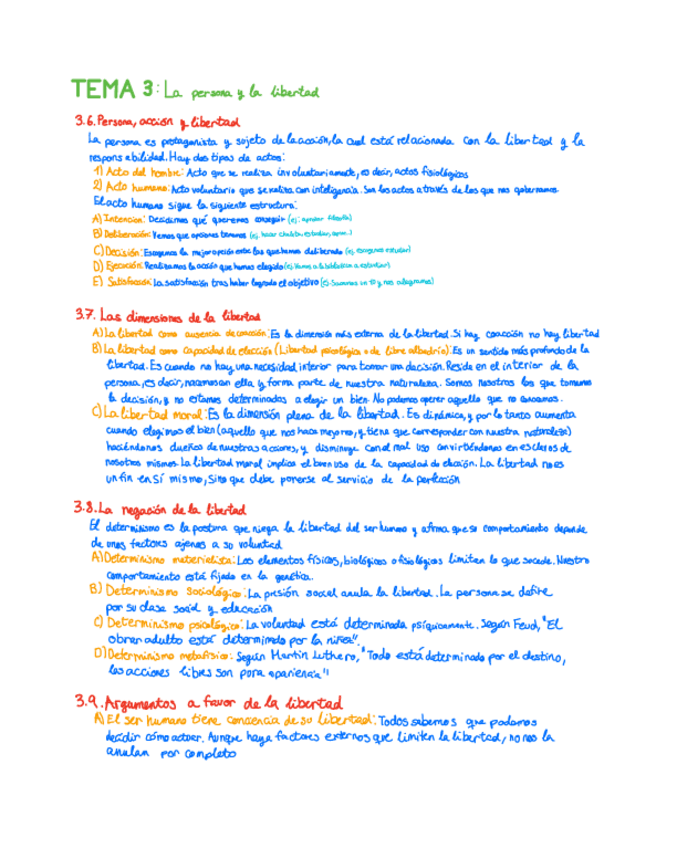 TEMA 3: La persona y la libertad
3.6. Persona, acción y libertad
La persona es protagonista y sujeto de la acción, la cual está relacionada con la libertad y la
responsabilidad. Hay dos tipos de actos:
1) Acto del hombre: Acto que se realiza involuntariamente, es decir, actos fisiológicos
2) Acto humano: Acto voluntario que se realiza con inteligencia. Son los actos a través de los que nos gobernamos
El acto humano sigue la siguiente estructura:
A) Intención: Decidimos qué queremos conseguir (ej: aprobar filosofía)
B) Deliberación: Vemos que opciones tenemos (ej. hacer chuletas, estudiar, copiar...)
C) Decisión: Escogemos la mejor opción entre las que hemos deliberado (ej. escogemos estudiar)
D) Ejecución: Realizamos la acción que hemos elegido (ej. Vamos a la biblioteca a estudiar)
E) Satisfacción: La satisfacción tras haber logrado el objetivo (ej. Sacamos un 10 y nos alegramos)
3.7. Las dimensiones de la libertad
A) La libertad como ausencia de coacción: Es la dimensión más externa de la libertad. Si hay coacción no hay libertad
B) La libertad como capacidad de elección (Libertad psicológica o de libre albedrío): Es un sentido más profundo de la
libertad. Es cuando no hay una necesidad interior para tomar una decisión. Reside en el interior de la
persona, es decir, nacemos con ella y forma parte de nuestra naturaleza. Somos nosotros los que tomamos
la decisión, y no estamos determinados a elegir un bien. No podemos querer aquello que no conocemos.
C) La libertad moral: Es la dimensión plena de la libertad. Es dinámica, y por lo tanto aumenta
cuando elegimos el bien (aquello que nos hace mejores, y tiene que corresponder con nuestra naturaleza)
haciéndonos dueños de nuestras acciones, y disminuye con el mal uso convirtiéndonos en esclavos de
nosotros mismos. La libertad moral implica el buen uso de la capacidad de elección. La libertad no es
un fin en sí mismo, sino que debe ponerse al servicio de la perfección
3.8. La negación de la libertad
El determinismo es la postura que niega la libertad del ser humano y afirma que su comportamiento depende
de unos factores ajenos a su voluntad
A) Determinismo materialista: Los elementos físicos, biológicos o fisiológicos limitan lo que sucede. Nuestro
comportamiento está fijado en la genética.
B) Determinismo sociológico: La presión social anula la libertad. La persona se define
por su clase social y educación
C) Determinismo psicológico: La voluntad está determinada psíquicamente. Según Feud, "El
obrar adulto está determinado por la niñez".
D) Determinismo metafísico: Según Martin Luthero, "Todo está determinado por el destino,
las acciones libres son pura apariencia"
3.9. Argumentos a favor de la libertad
A) El ser humano tiene conciencia de su libertad: Todos sabemos que podemos
decidir cómo actuar. Aunque haya factores externos que limiten la libertad, no nos la
anulan por completo